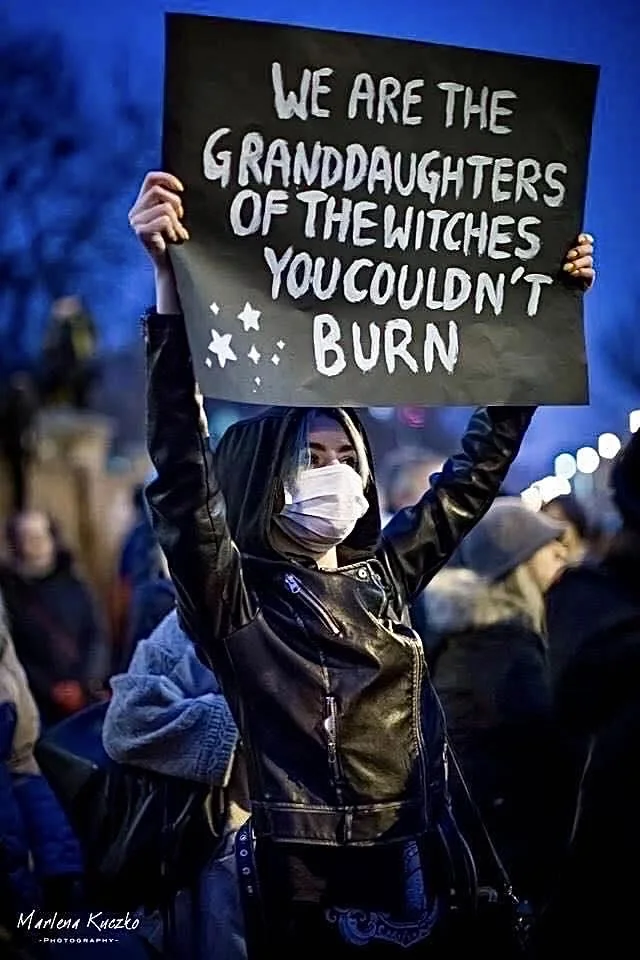 WE ARE THE
GRANDDAUGHTERS
OF THE WITCHES
YOU COULDN'T
BURN
Marlena Kuczko
-PHOTOGRAPHY-